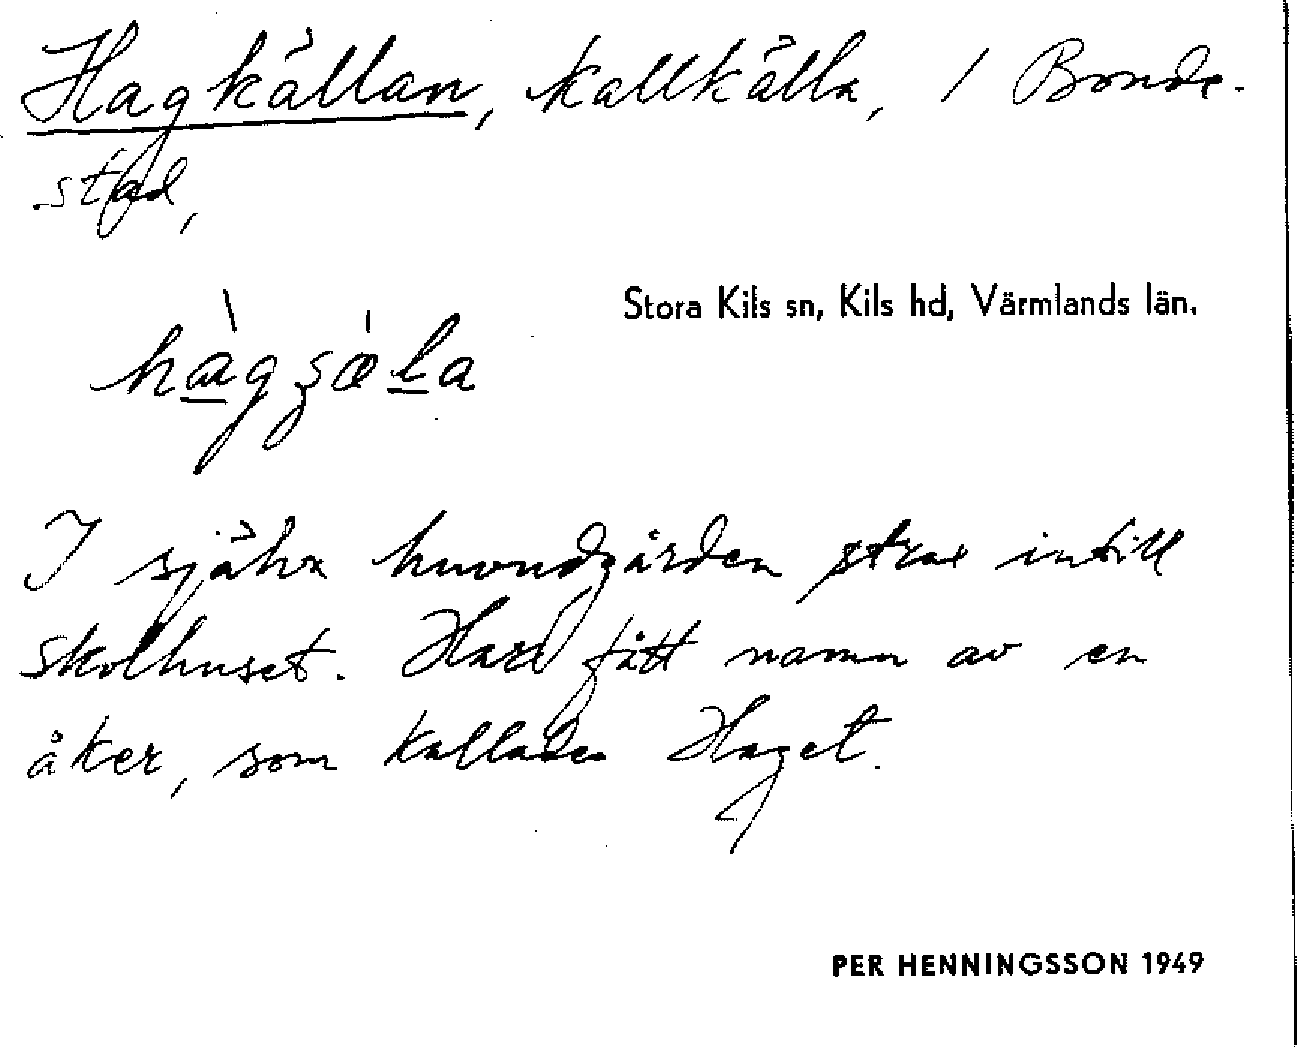 Hagkällan, kallkälla, / Bonde-
stad,
Stora Kils sn, Kils hd, Värmlands län.
I själva huvudgården strax intill
skolhuset. Har fått namn av en
åker, som kallades Haget.
PER HENNINGSSON 1949